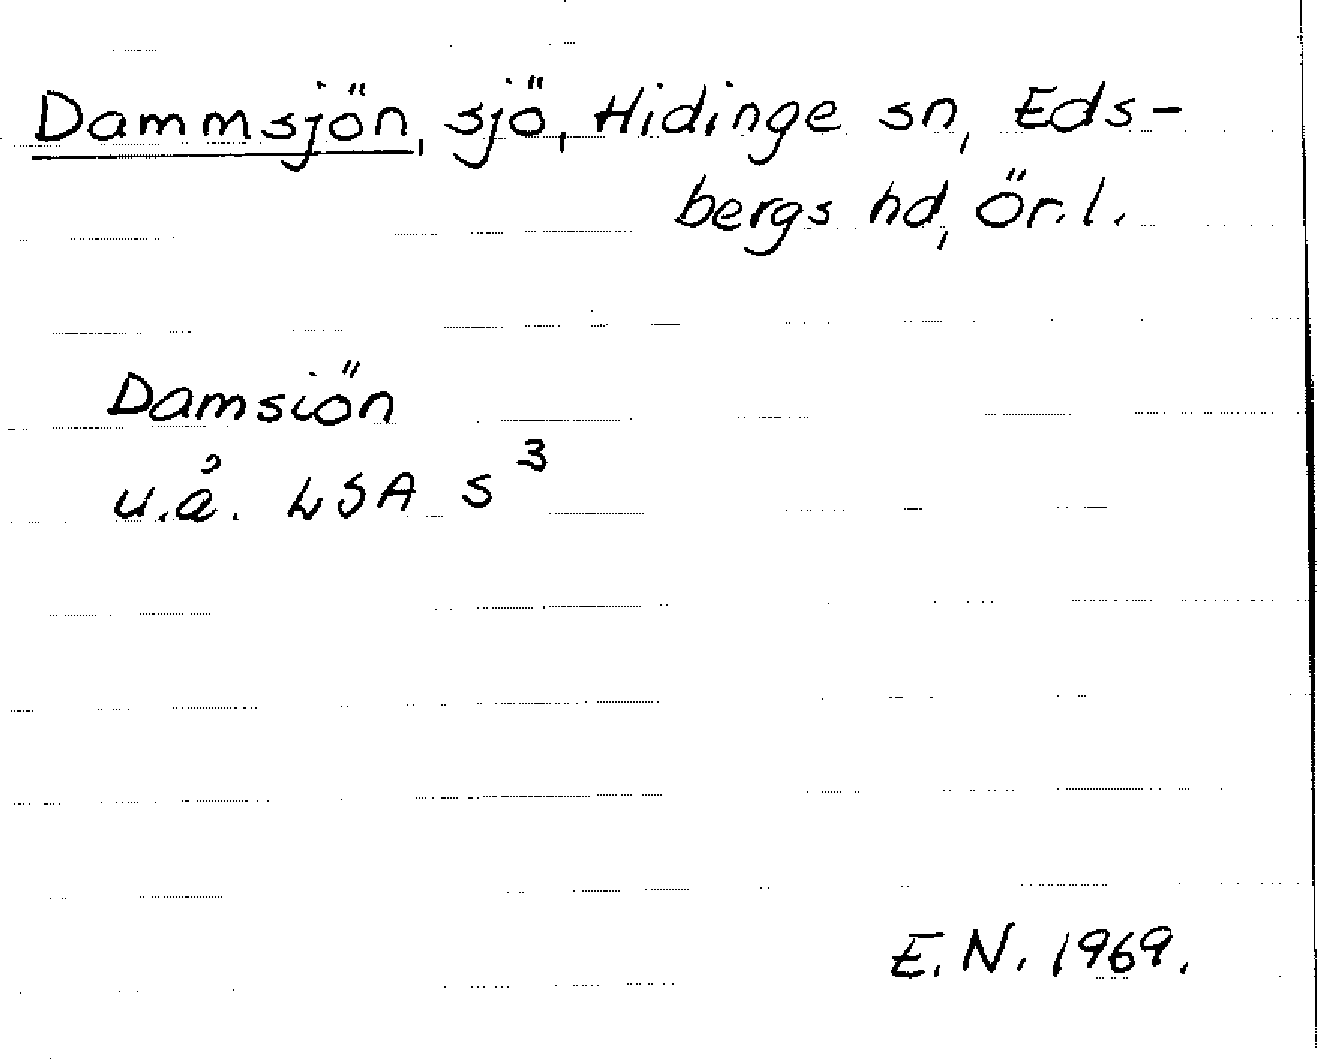 Dammsjön, sjö, Hidinge sn, Eds-
bergs hd, Ör.l.
Damsiön
u.å. LSA s³
E.N. 1969.